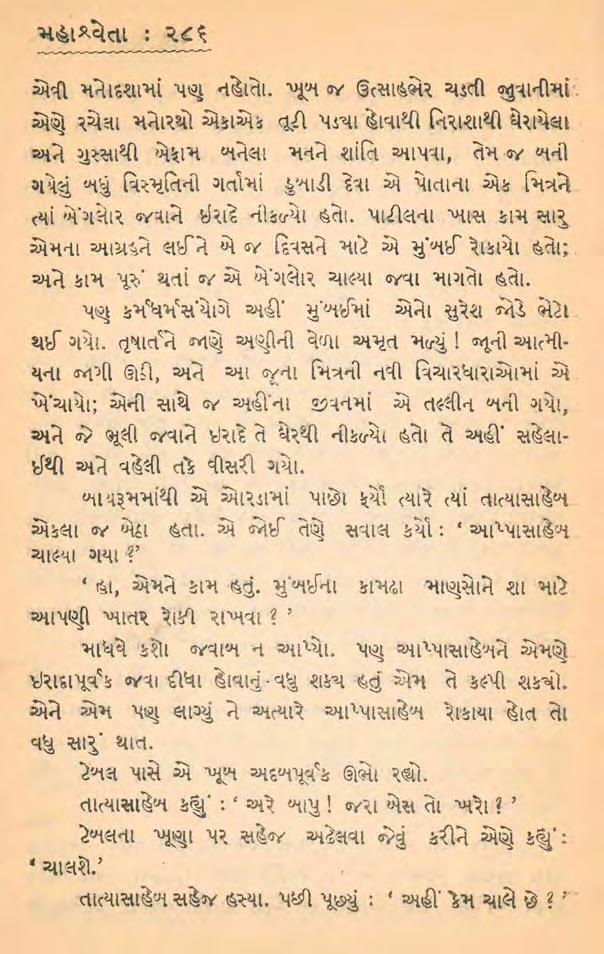 મહાશ્વેતા : ૨૮૬
એવી મનોદશામાં પણ નહોતો. ખૂબ જ ઉત્સાહભેર ચડતી જુવાનીમાં
એણે રચેલા મનોરથો એકાએક તૂટી પડ્યા હોવાથી નિરાશાથી ઘેરાયેલા
અને ગુસ્સાથી બેફામ બનેલા મનને શાંતિ આપવા, તેમ જ બની
ગયેલું બધું વિસ્મૃતિની ગર્તામાં ડુબાડી દેવા એ પોતાના એક મિત્રને
ત્યાં બેંગલોર જવાને ઇરાદે નીકળ્યો હતો. પાટીલના ખાસ કામ સારુ
એમના આગ્રહને લઈને બે જ દિવસને માટે એ મુંબઈ રોકાયો હતો;
અને કામ પૂરું થતાં જ એ બેંગલોર ચાલ્યા જવા માગતો હતો.
પણ કર્મધર્મસંયોગે અહીં મુંબઈમાં એનો સુરેશ જોડે ભેટો
થઈ ગયો. તૃષાર્તને જાણે અણીની વેળા અમૃત મળ્યું ! જૂની આત્મી-
યના જાગી ઊઠી, અને આ જૂના મિત્રની નવી વિચારધારાઓમાં એ
ખેંચાયો; એની સાથે જ અહીંના જીવનમાં એ તલ્લીન બની ગયો,
અને જે ભૂલી જવાને ઇરાદે તે ઘેરથી નીકળ્યો હતો તે અહીં સહેલા-
ઈથી અને વહેલી તકે વીસરી ગયો.
બાથરૂમમાંથી એ ઓરડામાં પાછો ફર્યો ત્યારે ત્યાં તાત્યાસાહેબ
એકલા જ બેઠા હતા. એ જોઈ તેણે સવાલ કર્યો : ‘ આપ્પાસાહેબ
ચાલ્યા ગયા ?’
‘ હા, એમને કામ હતું. મુંબઈના કામઢા માણસોને શા માટે
આપણી ખાતર રોકી રાખવા ? ’
માધવે કશો જવાબ ન આપ્યો. પણ આપ્પાસાહેબને એમણે
ઇરાદાપૂર્વક જવા દીધા હોવાનું વધુ શક્ય હતું એમ તે કલ્પી શક્યો.
એને એમ પણ લાગ્યું ને અત્યારે આપ્પાસાહેબ રોકાયા હોત તો
વધુ સારું થાત.
ટેબલ પાસે એ ખૂબ અદબપૂર્વક ઊભો રહ્યો.
તાત્યાસાહેબ કહ્યું : ‘ અરે બાપુ ! જરા બેસ તો ખરો ? ’
ટેબલના ખૂણા પર સહેજ અઢેલવા જેવું કરીને એણે કહ્યું :
‘ ચાલશે.’
તાત્યાસાહેબ સહેજ હસ્યા. પછી પૂછ્યું : ‘ અહીં કેમ ચાલે છે ? ’